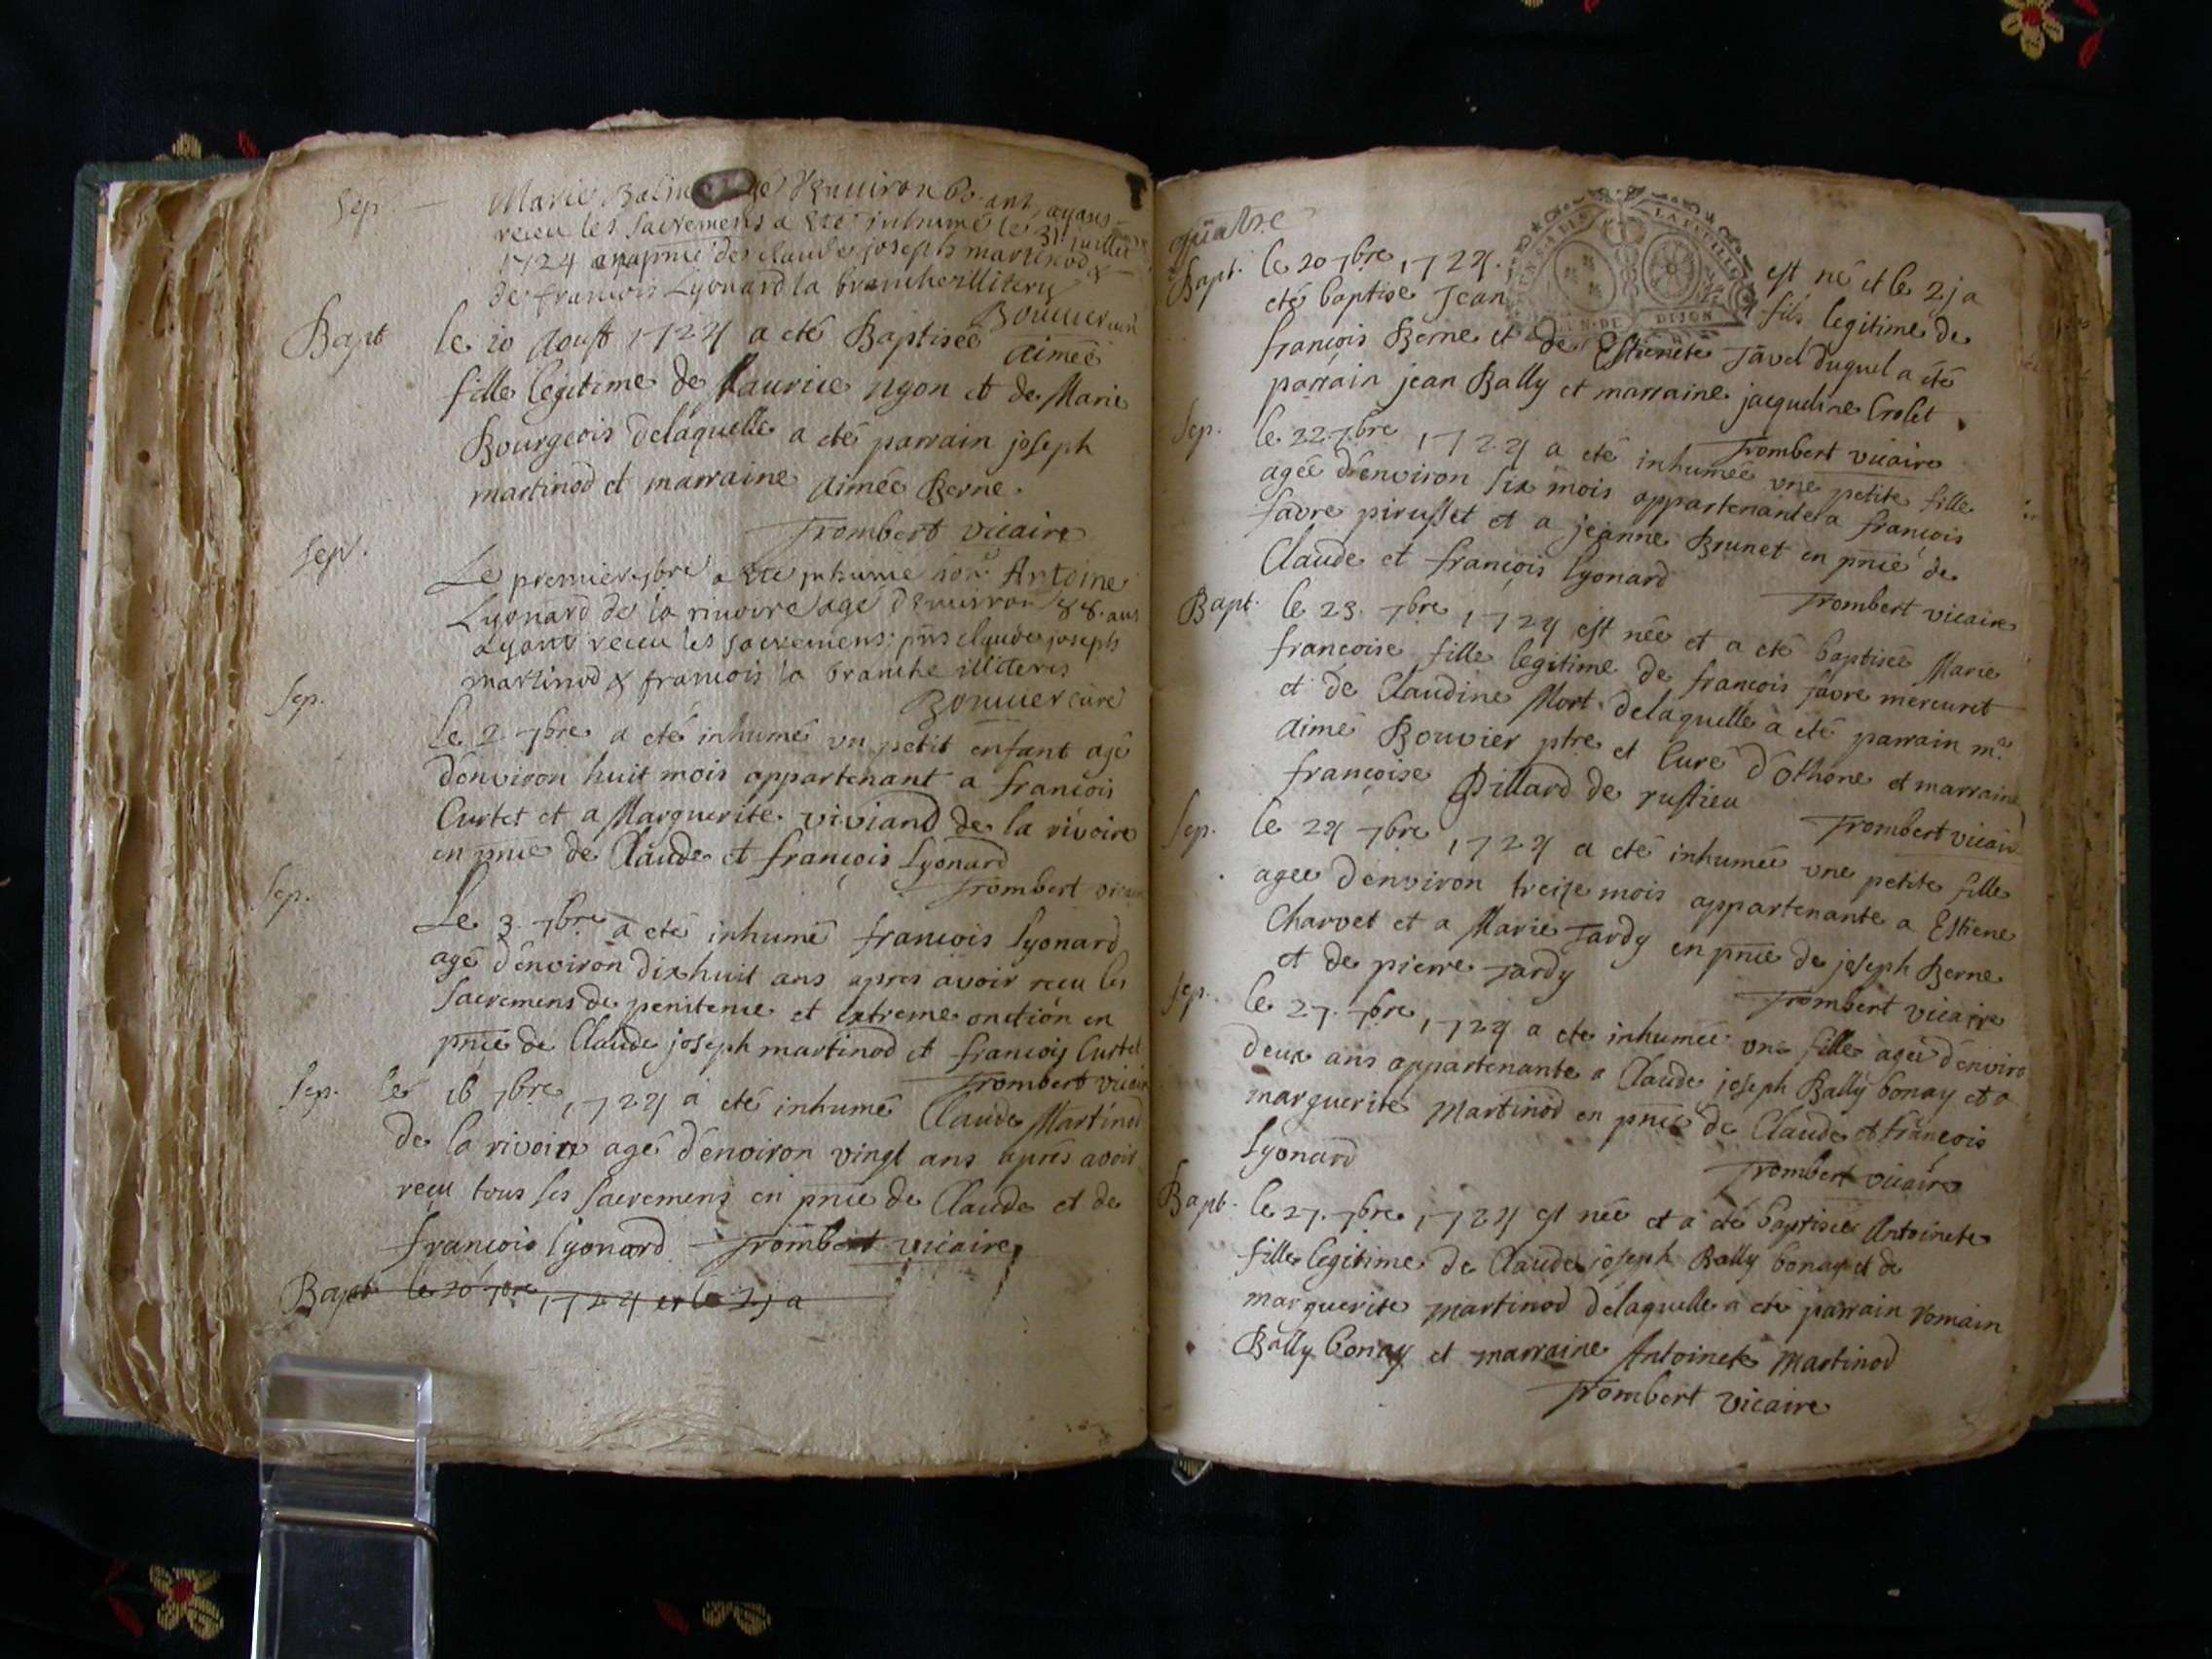 Sep. Marie
receu les sacremens a eté inhumé le 31 juillet
1724 en pnce de claude joseph martinod &
de francois Lyonard la branche illiterez
Bouvier curé
Bapt le 20 Aoust 1724 a eté Baptiseé Aimeé
fille legitime de Maurice nyon et de Marie
Bourgeois delaquelle a eté parrain joseph
martinod et marraine Aimée Berne.
Trombert vicaire
Sep. Le premier 7bre a eté inhumé Antoine
Lyonard de la rivoire agé d'environ 88. ans
ayant receu les sacremens pns claude joseph
martinod & francois la branche illiteres
Bouvier curé
Sep. le 2. 7bre a eté inhumé un petit enfant agé
d'environ huit mois appartenant a francois
Curtet et a Marguerite viviand de la rivoire
en pnce de Claude et françois Lyonard
Trombert
Sep. Le 3. 7bre a eté inhumé francois lyonard
agé d'environ dixhuit ans apres avoir receu les
sacremens de penitence et extreme onction en
pnce de Claude joseph martinod et francois Curtet
Trombert vicair
Sep. le 16 7bre 1724 a eté inhumé Claude Martinod
de la rivoire agé d'environ vingt ans aprés avoir
receu tous ses sacremens en pnce de Claude et de
francois lyonard Trombert vicaire
Bapt le 20 7bre 1724 et le 21 a
quatre
Bapt. le 20 7bre 1724. est né et le 21 a
eté baptisé Jean fils legitime de
françois Berne et de Estienete Javel duquel a été
parrain jean Bally et marraine jacqueline Crolet
Trombert vicaire
Sep. le 22. 7bre 1724 a eté inhumée une petite fille
agée d'environ six mois appartenante a françois
favre pirusset et a jeanne Brunet en pnce de
Claude et françois lyonard
Trombert vicaire
Bapt. le 23. 7bre 1724 est née et a eté baptisée Marie
francoise fille legitime de francois favre mercuret
et de Claudine Mort delaquelle a été parrain mre
Aimé Bouvier ptre et Curé d'Othone et marraine
françoise Dillard de rustieu
Trombert vicair
Sep. le 24 7bre 1724 a eté inhumée une petite fille
agee d'environ treize mois appartenante a Estiene
Charvet et a Marie Tardy en pnce de joseph Berne
et de pierre Tardy
Trombert vicaire
Sep. le 27. 7bre 1724 a ete inhumée une fille agée d'enviro
deux ans appartenante a Claude joseph Bally bonay et a
marguerite Martinod en pnce de Claude et françois
Lyonard
Trombert vicaire
Bapt. le 27. 7bre 1724 est née et a eté baptisée Antoinete
fille legitime de Claude joseph Bally bonay et de
marguerite martinod delaquelle a eté parrain romain
Bally bonay et marraine Antoinete Martinod
Trombert vicaire